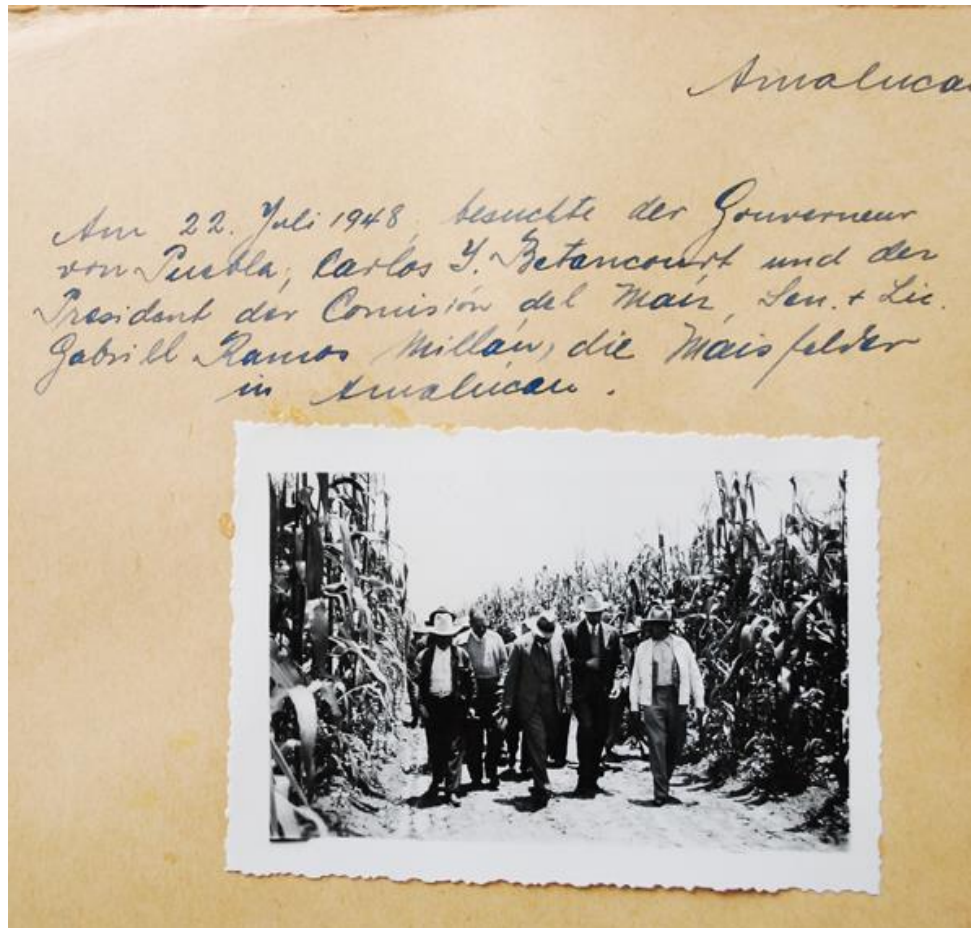 Amaluca
Am 22. Juli 1948, besuchte der Gouverneur
von Puebla, Carlos I. Betancourt und der
President der Comisión del Maiz, Sen. + Lic.
Gabriell Ramos Millán, die Maisfelder
in Amalucan.